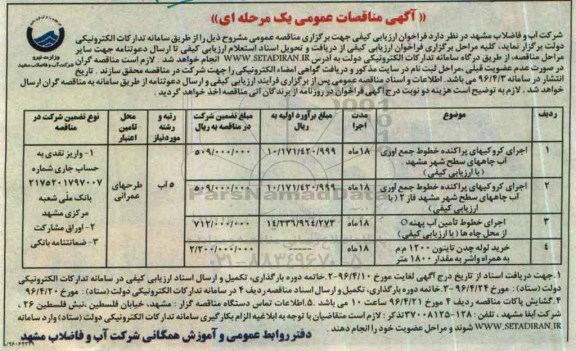 « آگهی مناقصات عمومی یک مرحله ای»
وزارت نیرو
شرکت آب و فاضلاب مشهد
شرکت آب و فاضلاب مشهد در نظر دارد فراخوان ارزیابی کیفی جهت برگزاری مناقصه عمومی مشروح ذیل را از طریق سامانه تدارکات الکترونیکی
دولت برگزار نماید، کلیه مراحل برگزاری فراخوان ارزیابی کیفی از دریافت و تحویل اسناد استعلام ارزیابی کیفی تا ارسال دعوتنامه جهت سایر
مراحل مناقصه، از طریق درگاه سامانه تدارکات الکترونیکی دولت به آدرس WWW.SETADIRAN.IR انجام خواهد شد . لازم است مناقصه گران
در صورت عدم عضویت قبلی ،مراحل ثبت نام در سایت مذکور و دریافت گواهی امضاء الکترونیکی را جهت شرکت در مناقصه محقق سازند . تاریخ
انتشار در سامانه ۹۶/۴/۳ می باشد. اطلاعات و اسناد مناقصه عمومی پس از برگزاری فرایند ارزیابی کیفی و ارسال دعوتنامه از طریق سامانه به مناقصه گران ارسال
خواهد شد . لازم به توضیح است هزینه دو نوبت درج آگهی فراخوان در روزنامه از برندگان آتی مناقصه اخذ خواهد گردید .
ردیف موضوع مدت اجرا مبلغ برآورد اولیه به ریال مبلغ تضمین شرکت در مناقصه به ریال رتبه و رشته موردنیاز محل تامین اعتبار نوع تضمین شرکت در مناقصه
۱ اجرای کروکیهای پراکنده خطوط جمع آوری آب چاههای سطح شهر مشهد (با ارزیابی کیفی) ۱۸ماه ۱۰/۱۷۱/۴۲۰/۹۹۹ ۵۰۹/۰۰۰/۰۰۰
۲ اجرای کروکیهای پراکنده خطوط جمع آوری آب چاههای سطح شهر مشهد فاز ۲ (با ارزیابی کیفی) ۱۸ماه ۱۰/۱۷۱/۴۲۰/۹۹۹ ۵۰۹/۰۰۰/۰۰۰
۳ اجرای خطوط تامین آب پهنه O از محل چاه ها (با ارزیابی کیفی) ۱۸ماه ۱۴/۲۳۶/۹۶۴/۲۷۳ ۷۱۲/۰۰۰/۰۰۰
۴ خرید لوله چدن نایتون ۱۲۰۰ م م به همراه واشر به مقدار ۱۸۰۰ متر ۱۸ماه ----- ۲/۲۰۰/۰۰۰/۰۰۰
۵ آب
طرحهای عمرانی
۱- واریز نقدی به
حساب جاری شماره
۲۱۷۵۲۰۱۷۹۷۰۰۷
بانک ملی شعبه
مرکزی مشهد
۲- اوراق مشارکت
۳- ضمانتنامه بانکی
۱. جهت دریافت اسناد از تاریخ درج آگهی لغایت مورخ ۹۶/۴/۱۰-۲. خاتمه دوره بارگذاری، تکمیل و ارسال اسناد ارزیابی کیفی در سامانه تدارکات الکترونیکی
دولت (ستاد) : مورخ ۹۶/۴/۲۴-۳. خاتمه دوره بارگذاری، تکمیل و ارسال اسناد مناقصه ردیف ۴ در سامانه تدارکات الکترونیکی دولت (ستاد) : مورخ ۹۶/۴/۲۰
۴. گشایش پاکات مناقصه ردیف ۴ مورخ ۹۶/۴/۲۱ ساعت ۱۰ می باشد .۵. اطلاعات تماس دستگاه مناقصه گزار : مشهد، خیابان فلسطین ،نبش فلسطین ۲۶ ،
شرکت آبفا مشهد، تلفن: ۱۲۸-۳۷۰۰۸۱۲۵تذکر: لازم است متقاضیان با توجه به ابلاغیه الزام بکارگیری سامانه تدارکات الکترونیکی دولت (ستاد) وارد سامانه
WWW.SETADIRAN.IR شوند و مراحل عضویت خود را انجام دهند .
دفتر روابط عمومی و آموزش همگانی شرکت آب و فاضلاب مشهد
ParsNamadData
۰۲۱-۸۸۳۴۹۶۷۰